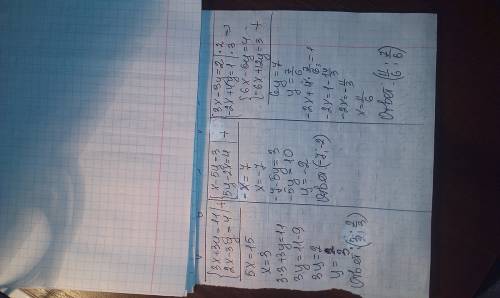 {3x+3y=11 +
{2x-3y=4
5x=15
x=3
3·3+3y=11
3y=11-9
3y=2
y=2/3
Ответ: (3; 2/3)
{x-5y=3 +
{5y-2x=4
-x=7
x=-7
-7-5y=3
-5y=10
y=-2
Ответ (-7;-2)
{3x-3y=2 |·2
{-2x+4y=1 |·3 =>
{6x-6y=4 +
{-6x+12y=3
6y=7
y=7/6
-2x+4·7/6=1
-2x=1-14/3
-2x=-11/3
x=11/6
Ответ: (11/6; 7/6)